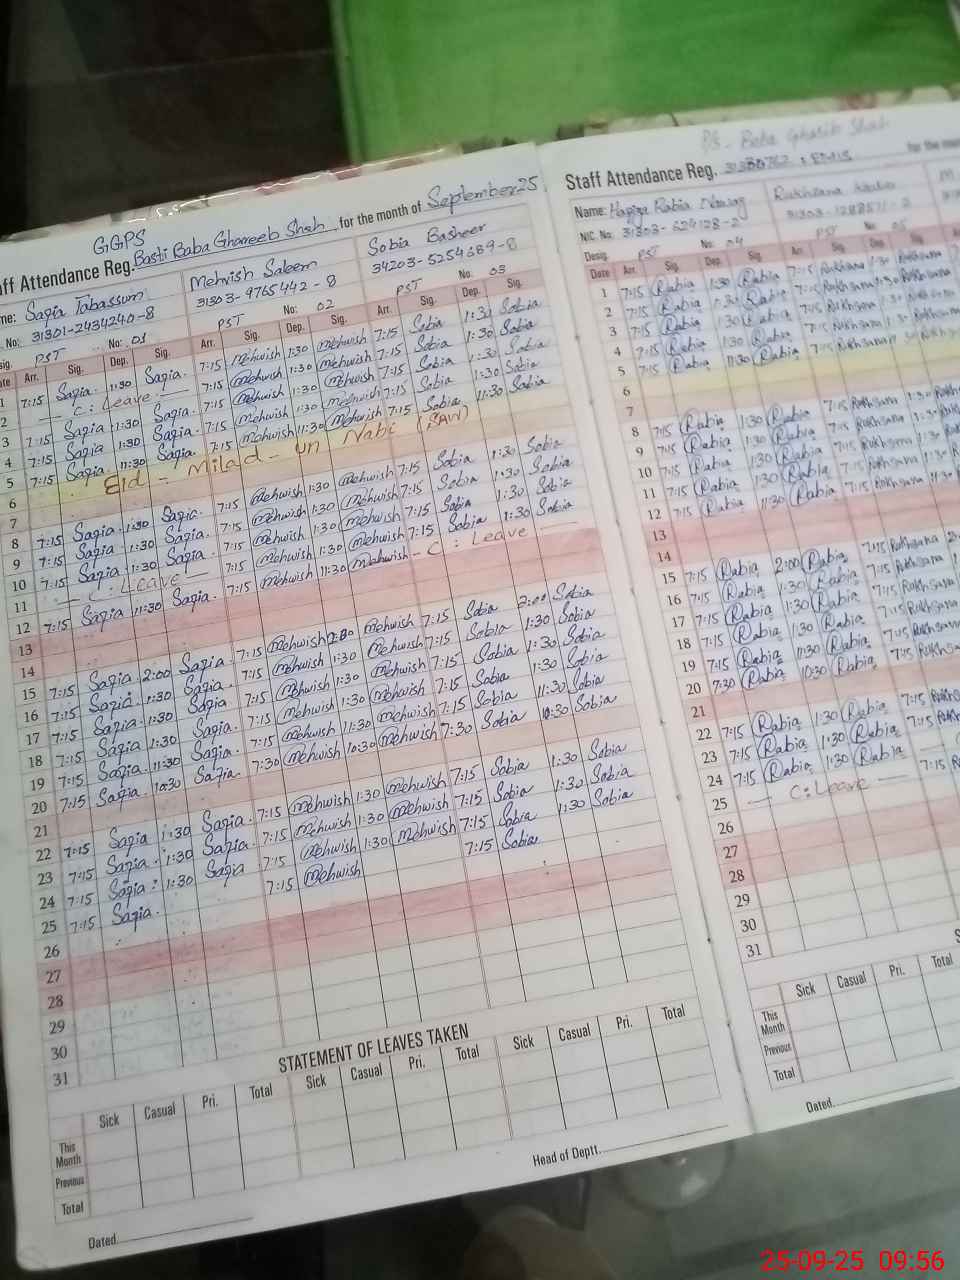 GGPS
Staff Attendance Reg. Basti Baba Ghareeb Shah for the month of September 25
Name: Sazia Tabassum Mehvish Saleem Sobia Basheer
No.: 31301-2434240-8 31303-9765442-8 34203-5254689-8
Desig. PST No: 01 PST No: 02 PST No: 03
Date Arr. Sig. Dep. Sig. Arr. Sig. Dep. Sig. Arr. Sig. Dep. Sig.
1 7:15 Sazia. 1:30 Sazia. 7:15 Mehwish 1:30 Mehwish 7:15 Sobia 1:30 Sobia
2 C: Leave 7:15 Mehwish 1:30 Mehwish 7:15 Sobia 1:30 Sobia
3 7:15 Sazia 1:30 Sazia. 7:15 Mehwish 1:30 Mehwish 7:15 Sobia 1:30 Sobia
4 7:15 Sazia 1:30 Sazia. 7:15 Mehwish 1:30 Mehwish 7:15 Sobia 1:30 Sobia
5 7:15 Sazia 11:30 Sazia. 7:15 Mehwish 11:30 Mehwish 7:15 Sobia 11:30 Sobia
6 Eid - Milad - un Nabi (SAW)
7
8 7:15 Sazia 1:30 Sazia. 7:15 Mehwish 1:30 Mehwish 7:15 Sobia 1:30 Sobia
9 7:15 Sazia 1:30 Sazia. 7:15 Mehwish 1:30 Mehwish 7:15 Sobia 1:30 Sobia
10 7:15 Sazia 1:30 Sazia. 7:15 Mehwish 1:30 Mehwish 7:15 Sobia 1:30 Sobia
11 C: Leave 7:15 Mehwish 1:30 Mehwish 7:15 Sobia 1:30 Sobia
12 7:15 Sazia 11:30 Sazia. 7:15 Mehwish 11:30 Mehwish C: Leave
13
14
15 7:15 Sazia 2:00 Sazia. 7:15 Mehwish 2:00 Mehwish 7:15 Sobia 2:00 Sobia
16 7:15 Sazia 1:30 Sazia. 7:15 Mehwish 1:30 Mehwish 7:15 Sobia 1:30 Sobia
17 7:15 Sazia. 1:30 Sazia 7:15 Mehwish 1:30 Mehwish 7:15 Sobia 1:30 Sobia
18 7:15 Sazia 1:30 Sazia. 7:15 Mehwish 1:30 Mehwish 7:15 Sobia 1:30 Sobia
19 7:15 Sazia. 11:30 Sazia. 7:15 Mehwish 11:30 Mehwish 7:15 Sobia 11:30 Sobia
20 7:15 Sazia. 10:30 Sazia. 7:30 Mehwish 10:30 Mehwish 7:30 Sobia 10:30 Sobia
21
22 7:15 Sazia 1:30 Sazia. 7:15 Mehwish 1:30 Mehwish 7:15 Sobia 1:30 Sobia
23 7:15 Sazia. 1:30 Sazia. 7:15 Mehwish 1:30 Mehwish 7:15 Sobia 1:30 Sobia
24 7:15 Sazia. 1:30 Sazia 7:15 Mehwish 1:30 Mehwish 7:15 Sobia 1:30 Sobia
25 7:15 Sazia. 7:15 Mehwish 7:15 Sobia
26
27
28
29
30
31
STATEMENT OF LEAVES TAKEN
Sick Casual Pri. Total Sick Casual Pri. Total Sick Casual Pri. Total
This Month
Previous
Total
Dated Head of Deptt.
P/S. Baba Gharib Shah
Staff Attendance Reg. : EMIS for the mon
Name: Hafiza Rabia Rukhsana
NIC No. 31303-629128-2 31303-1288571-2
Desig. PST No: 04 PST No: 05
Date Arr. Sig. Dep. Sig. Arr. Sig. Dep. Sig.
1 7:15 Rabia 1:30 Rabia 7:15 Rukhsana 1:30 Rukhsana
2 7:15 Rabia 1:30 Rabia 7:15 Rukhsana 1:30 Rukhsana
3 7:15 Rabia 1:30 Rabia 7:15 Rukhsana 1:30 Rukhsana
4 7:15 Rabia 1:30 Rabia 7:15 Rukhsana
5 7:15 Rabia 11:30 Rabia 7:15 Rukhsana
6
7
8 7:15 Rabia 1:30 Rabia 7:15 Rukhsana 1:30
9 7:15 Rabia 1:30 Rabia 7:15 Rukhsana 1:30
10 7:15 Rabia 1:30 Rabia 7:15 Rukhsana 1:30
11 7:15 Rabia 1:30 Rabia 7:15 Rukhsana
12 7:15 Rabia 11:30 Rabia 7:15 Rukhsana
13
14
15 7:15 Rabia 2:00 Rabia 7:15 Rukhsana
16 7:15 Rabia 1:30 Rabia 7:15 Rukhsana
17 7:15 Rabia 1:30 Rabia 7:15 Rukhsana
18 7:15 Rabia 1:30 Rabia 7:15 Rukhsana
19 7:15 Rabia 11:30 Rabia 7:15 Rukhsana
20 7:30 Rabia 10:30 Rabia 7:15
21
22 7:15 Rabia 1:30 Rabia 7:15
23 7:15 Rabia 1:30 Rabia 7:15
24 7:15 Rabia 1:30 Rabia
25 C: Leave 7:15
26
27
28
29
30
31
Sick Casual Pri. Total
This Month
Previous
Total
Dated
25-09-25 09:56